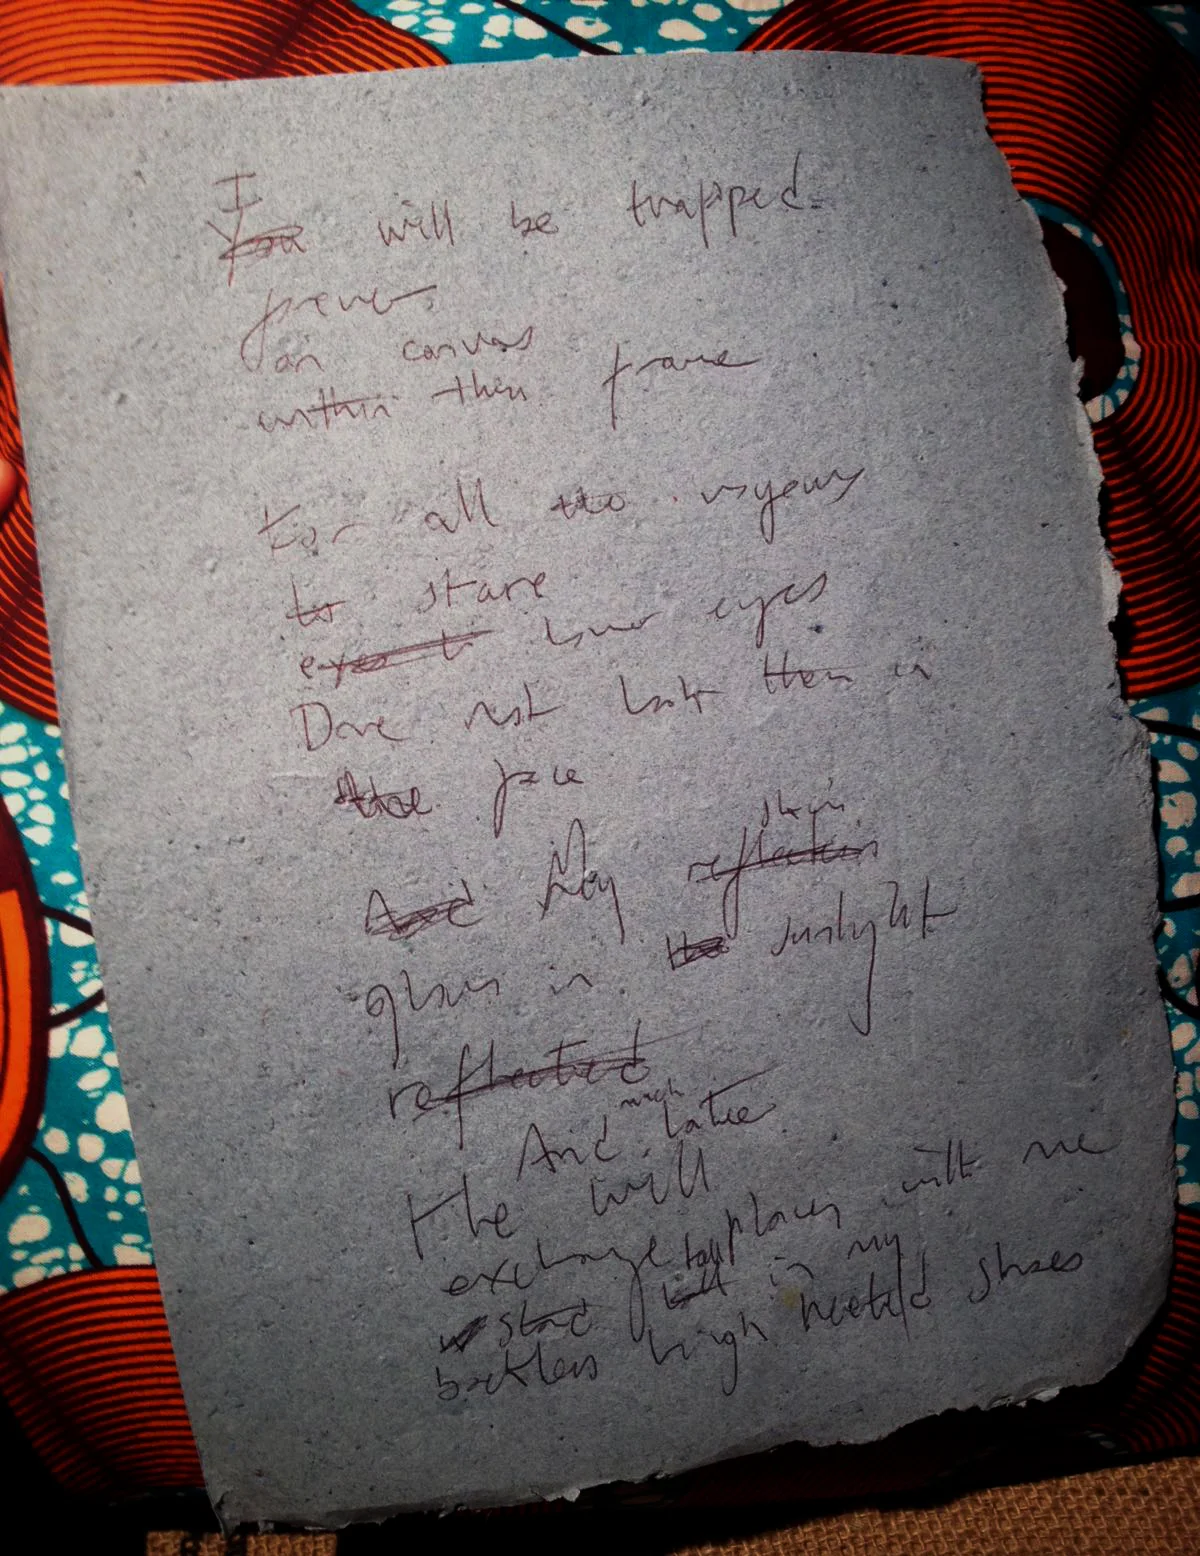 I
You will be trapped
forever
on canvas
within this frame
For all the voyeurs
to stare
whose eyes
Dare not look them in
the face
skin
And My reflection
glows in the sunlight
reflected
And later
He will
exchange places with me
stand tall in my
backless high heeled shoes